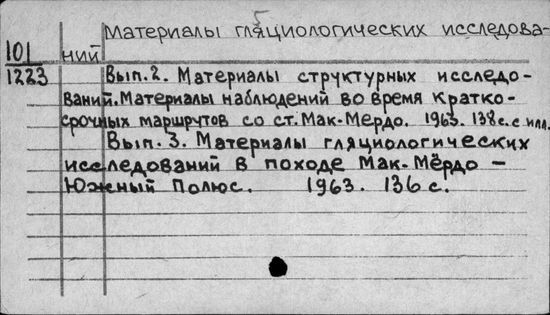 5
Материалы гляциологических исследова-
101
1223
ний
Вып. 2. Материалы структурных исследо-
ваний. Материалы наблюдений во время кратко-
срочных маршрутов со ст. Мак-Мердо. 1963. 138 с. с илл.
Вып. 3. Материалы гляциологических
исследований в походе Мак-Мёрдо –
Южный Полюс. 1963. 136 с.